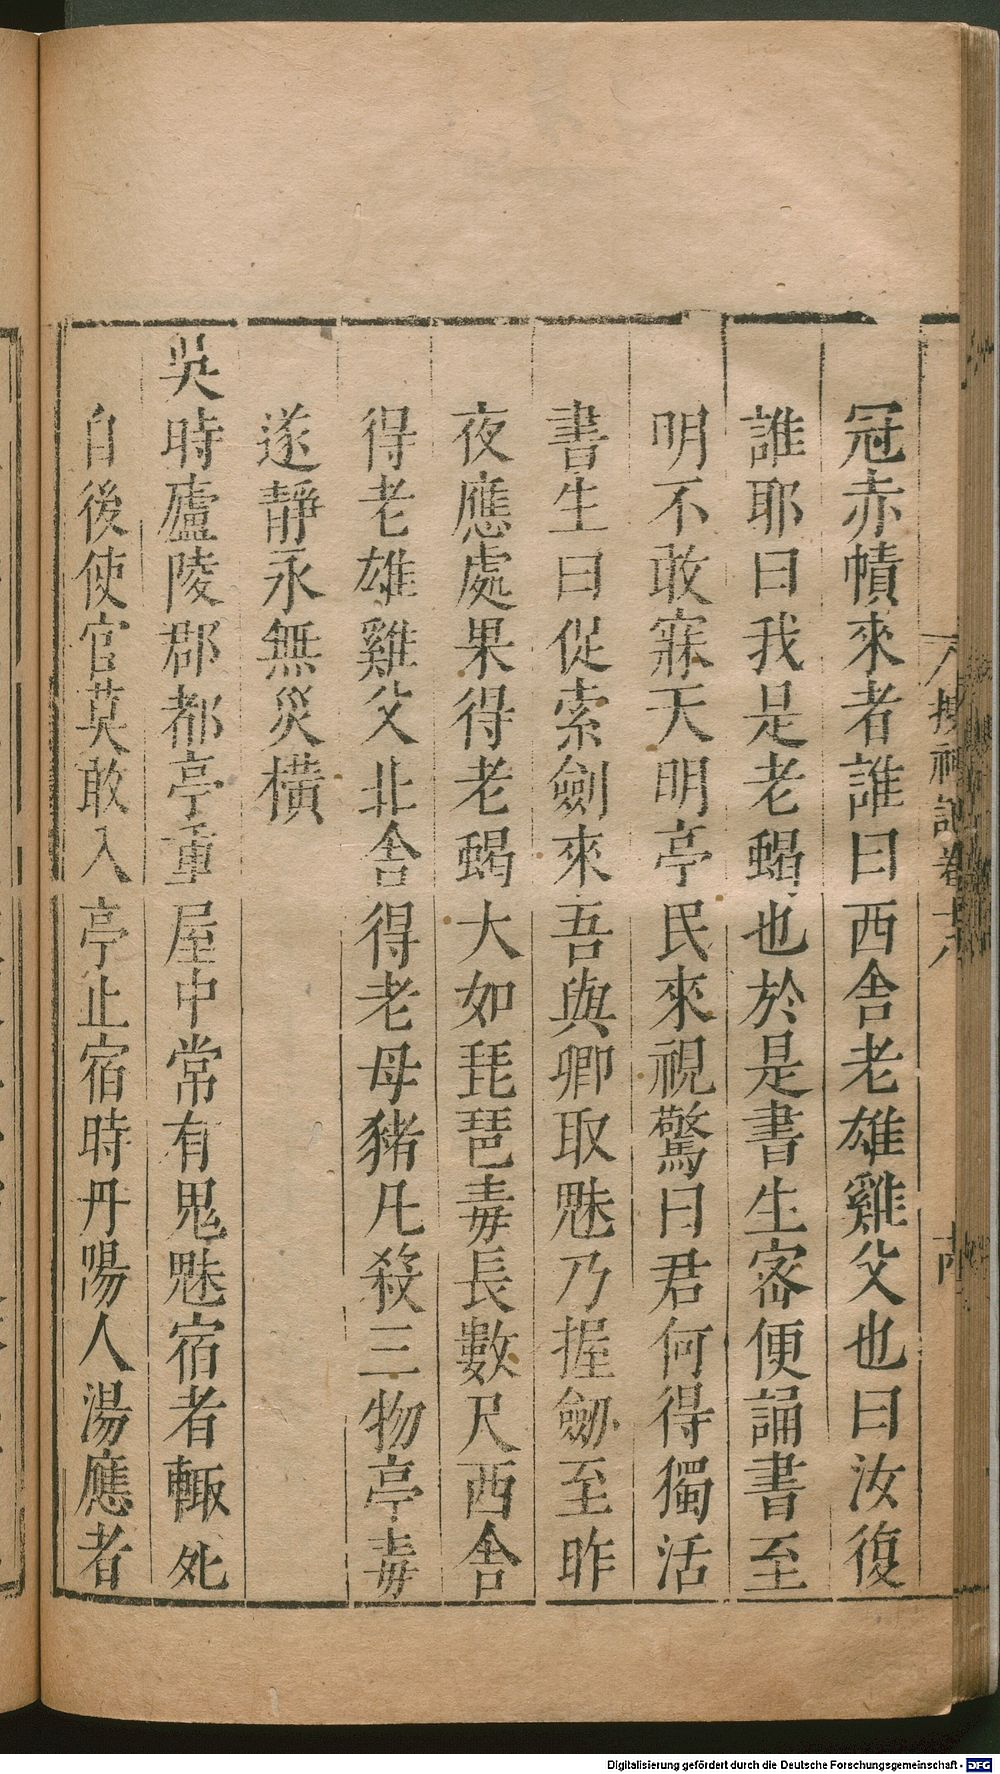 搜神記卷十八
冠赤幘來者誰曰西舍老雄雞父也曰汝復
誰耶曰我是老蝎也於是書生密便誦書至
明不敢寐天明亭民來視驚曰君何得獨活
書生曰促索劍來吾與卿取魅乃握劒至昨
夜應處果得老蝎大如琵琶毒長數尺西舍
得老雄雞父北舍得老母豬凡殺三物亭毒
遂靜永無災橫
吳時廬陵郡都亭重屋中常有鬼魅宿者輙死
自後使官莫敢入亭止宿時丹陽人湯應者
Digitalisierung gefördert durch die Deutsche Forschungsgemeinschaft - DFG